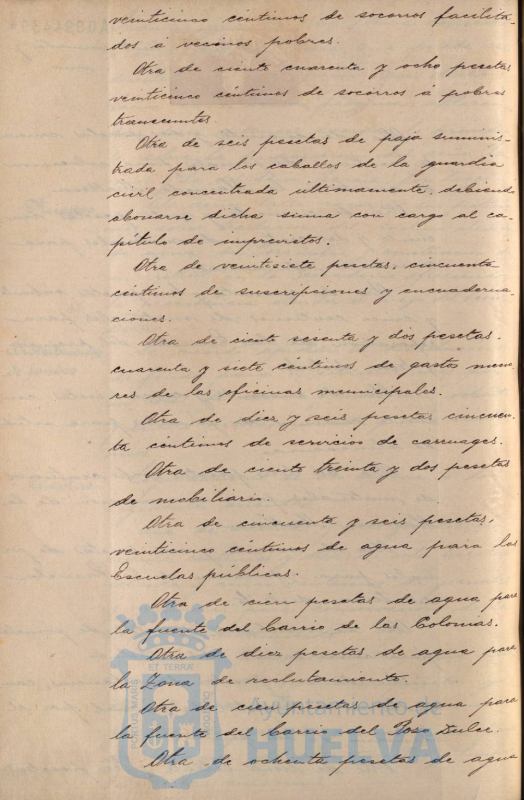 veinticinco céntimos de socorros facilita-
dos á vecinos pobres.
Otra de ciento cuarenta y ocho pesetas
veinticinco céntimos de socorros á pobres
transeuntes
Otra de seis pesetas de paja suminis-
trada para los caballos de la guardia
civil concentrada ultimamente, debiendo
abonarse dicha suma con cargo al ca-
pítulo de imprevistos.
Otra de veintisiete pesetas, cincuenta
céntimos de suscripciones y encuaderna-
ciones.
Otra de ciento sesenta y dos pesetas,
cuarenta y siete céntimos de gastos meno-
res de las oficinas municipales.
Otra de diez y seis pesetas cincuen-
ta céntimos de servicios de carruages.
Otra de ciento treinta y dos pesetas
de mobiliario.
Otra de cincuenta y seis pesetas,
veinticinco céntimos de agua para las
Escuelas públicas.
Otra de cien pesetas de agua para
la fuente del barrio de las Colonias.
Otra de diez pesetas de agua para
la Zona de reclutamiento.
Otra de cien pesetas de agua para
la fuente del barrio del Pozo Dulce.
Otra de ochenta pesetas de agua
PORTUS MARIS ET TERRÆ CUSTODIA
Ayuntamiento de
HUELVA